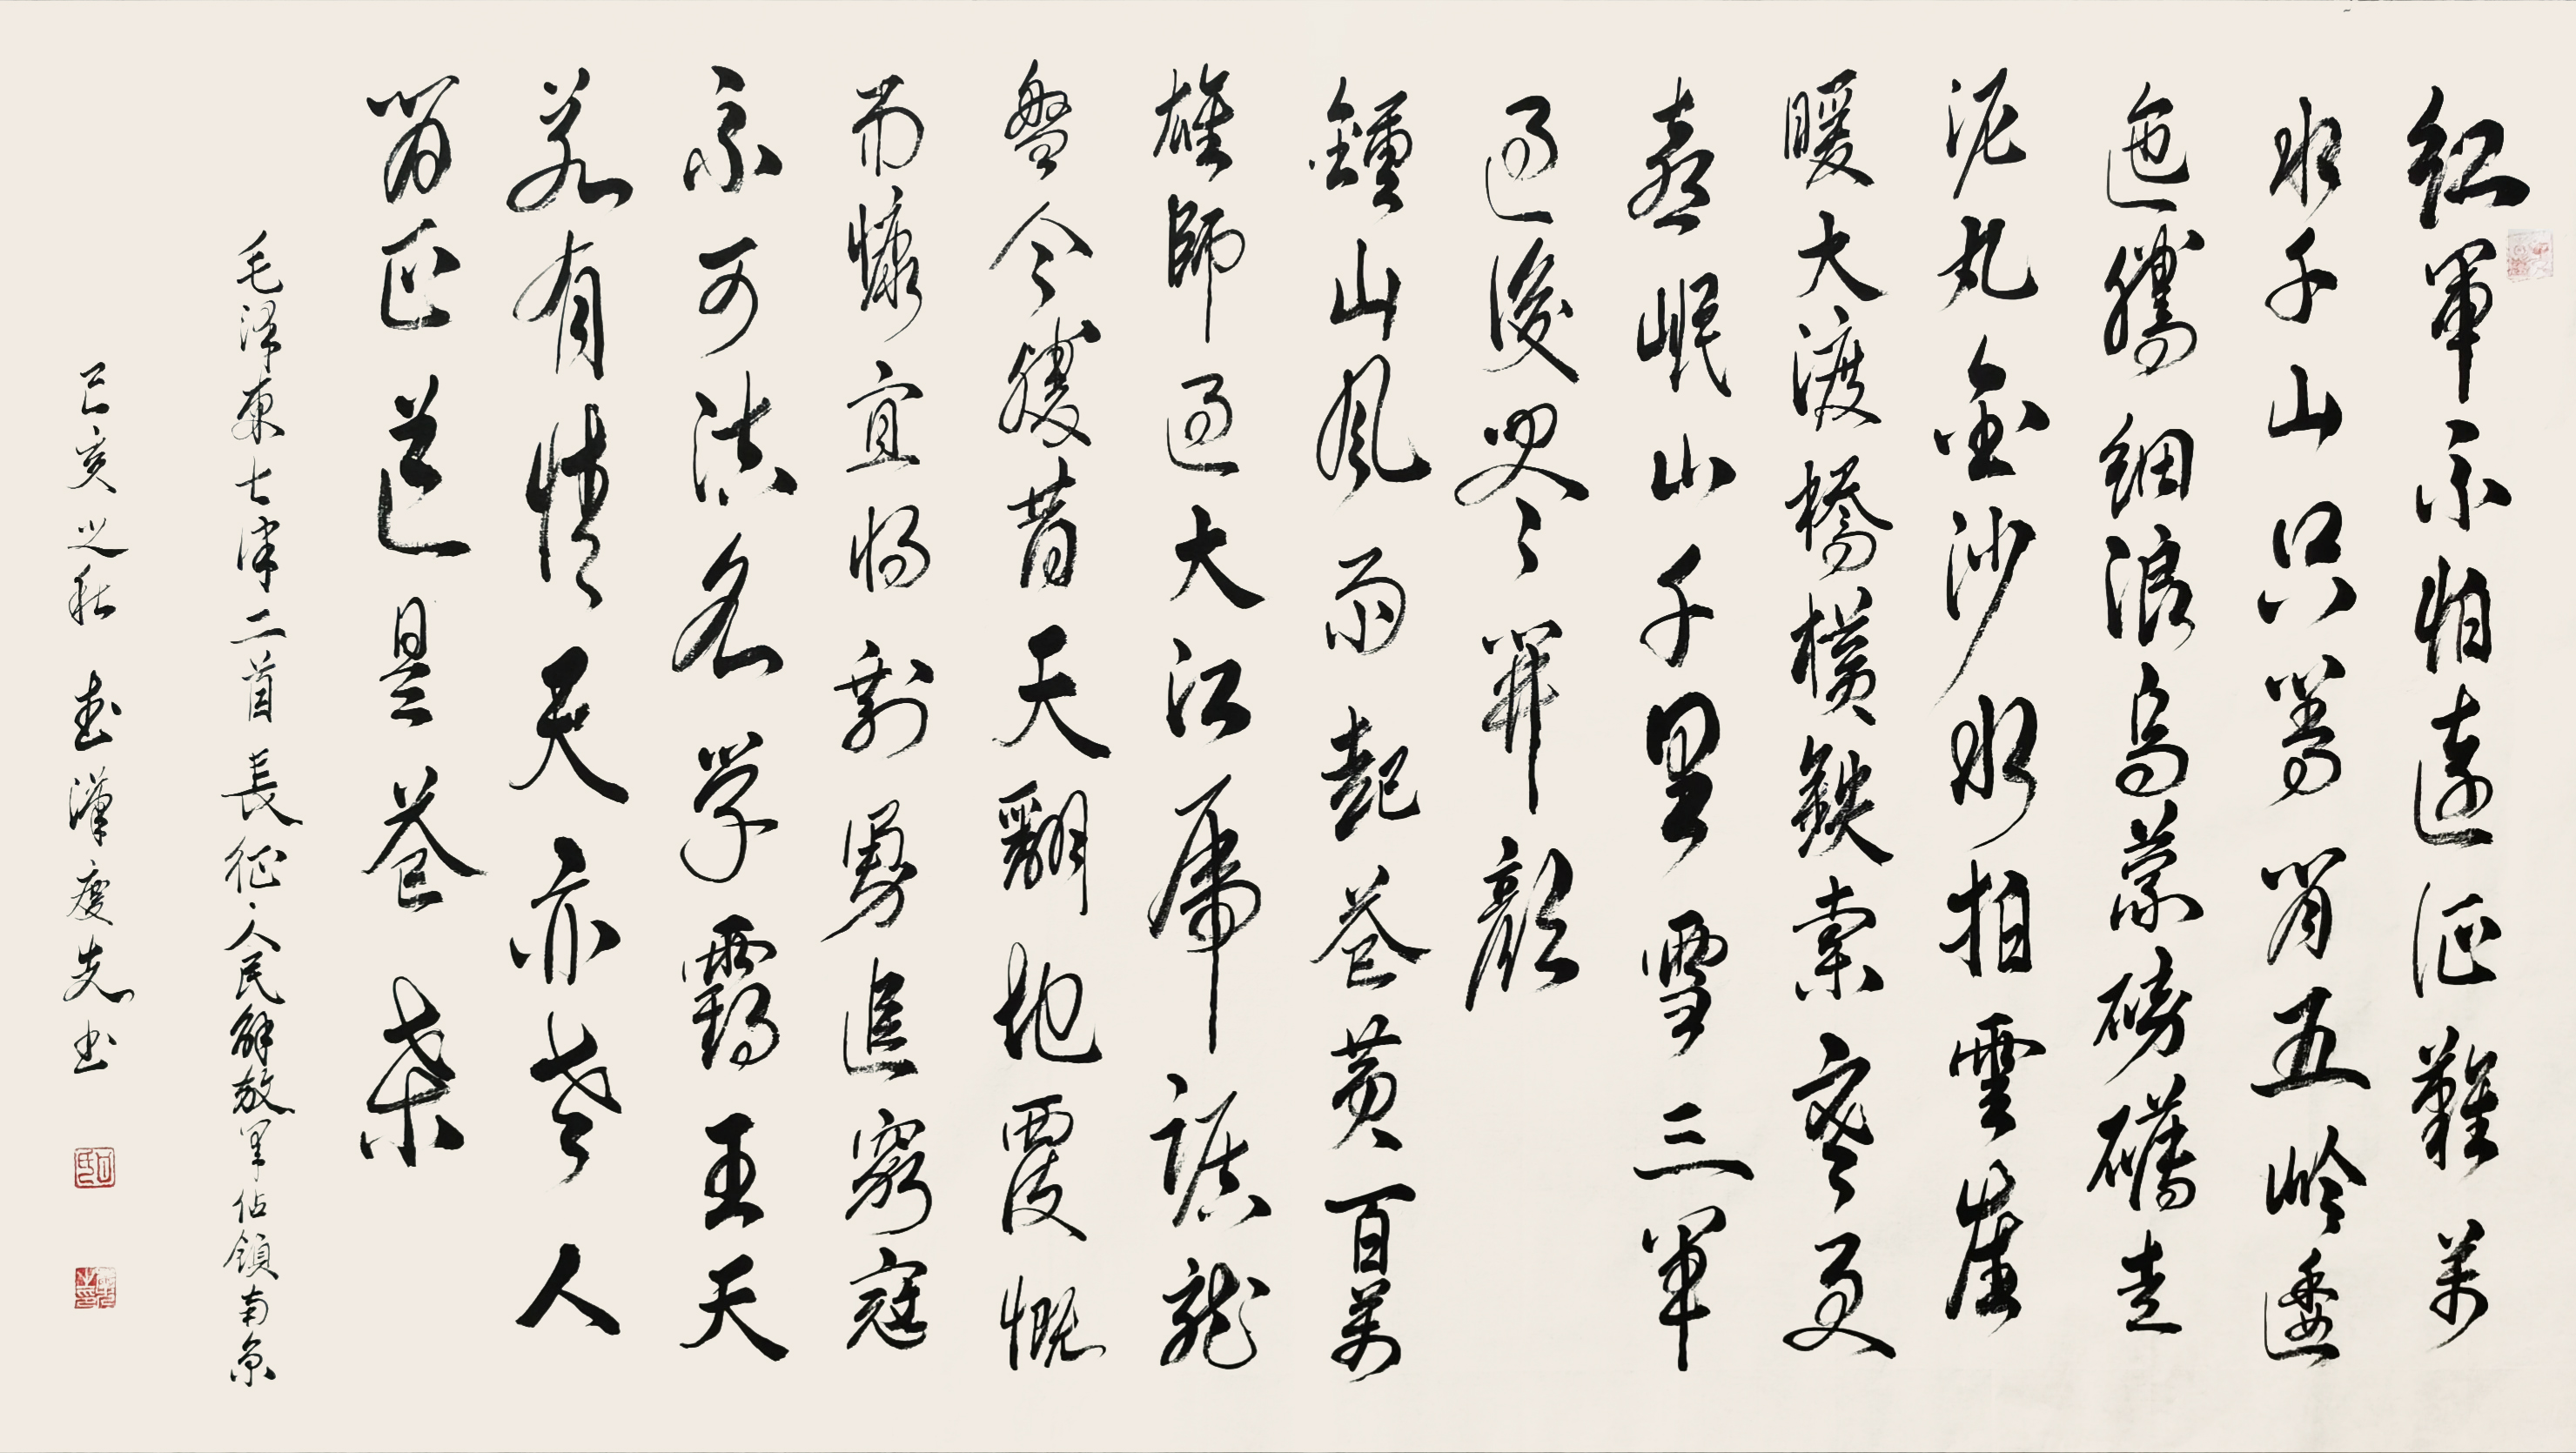 紅軍不怕遠征難萬
水千山只等閒五嶺逶
迤騰細浪烏蒙磅礴走
泥丸金沙水拍雲崖
暖大渡橋橫鐵索寒更
喜岷山千里雪三軍
過後盡開顏
鐘山風雨起蒼黃百萬
雄師過大江虎踞龍
盤今勝昔天翻地覆慨
而慷宜將剩勇追窮寇
不可沽名學霸王天
若有情天亦老人
間正道是蒼桑
毛澤東七律二首長征·人民解放軍佔領南京
己亥之秋 武漢慶先书